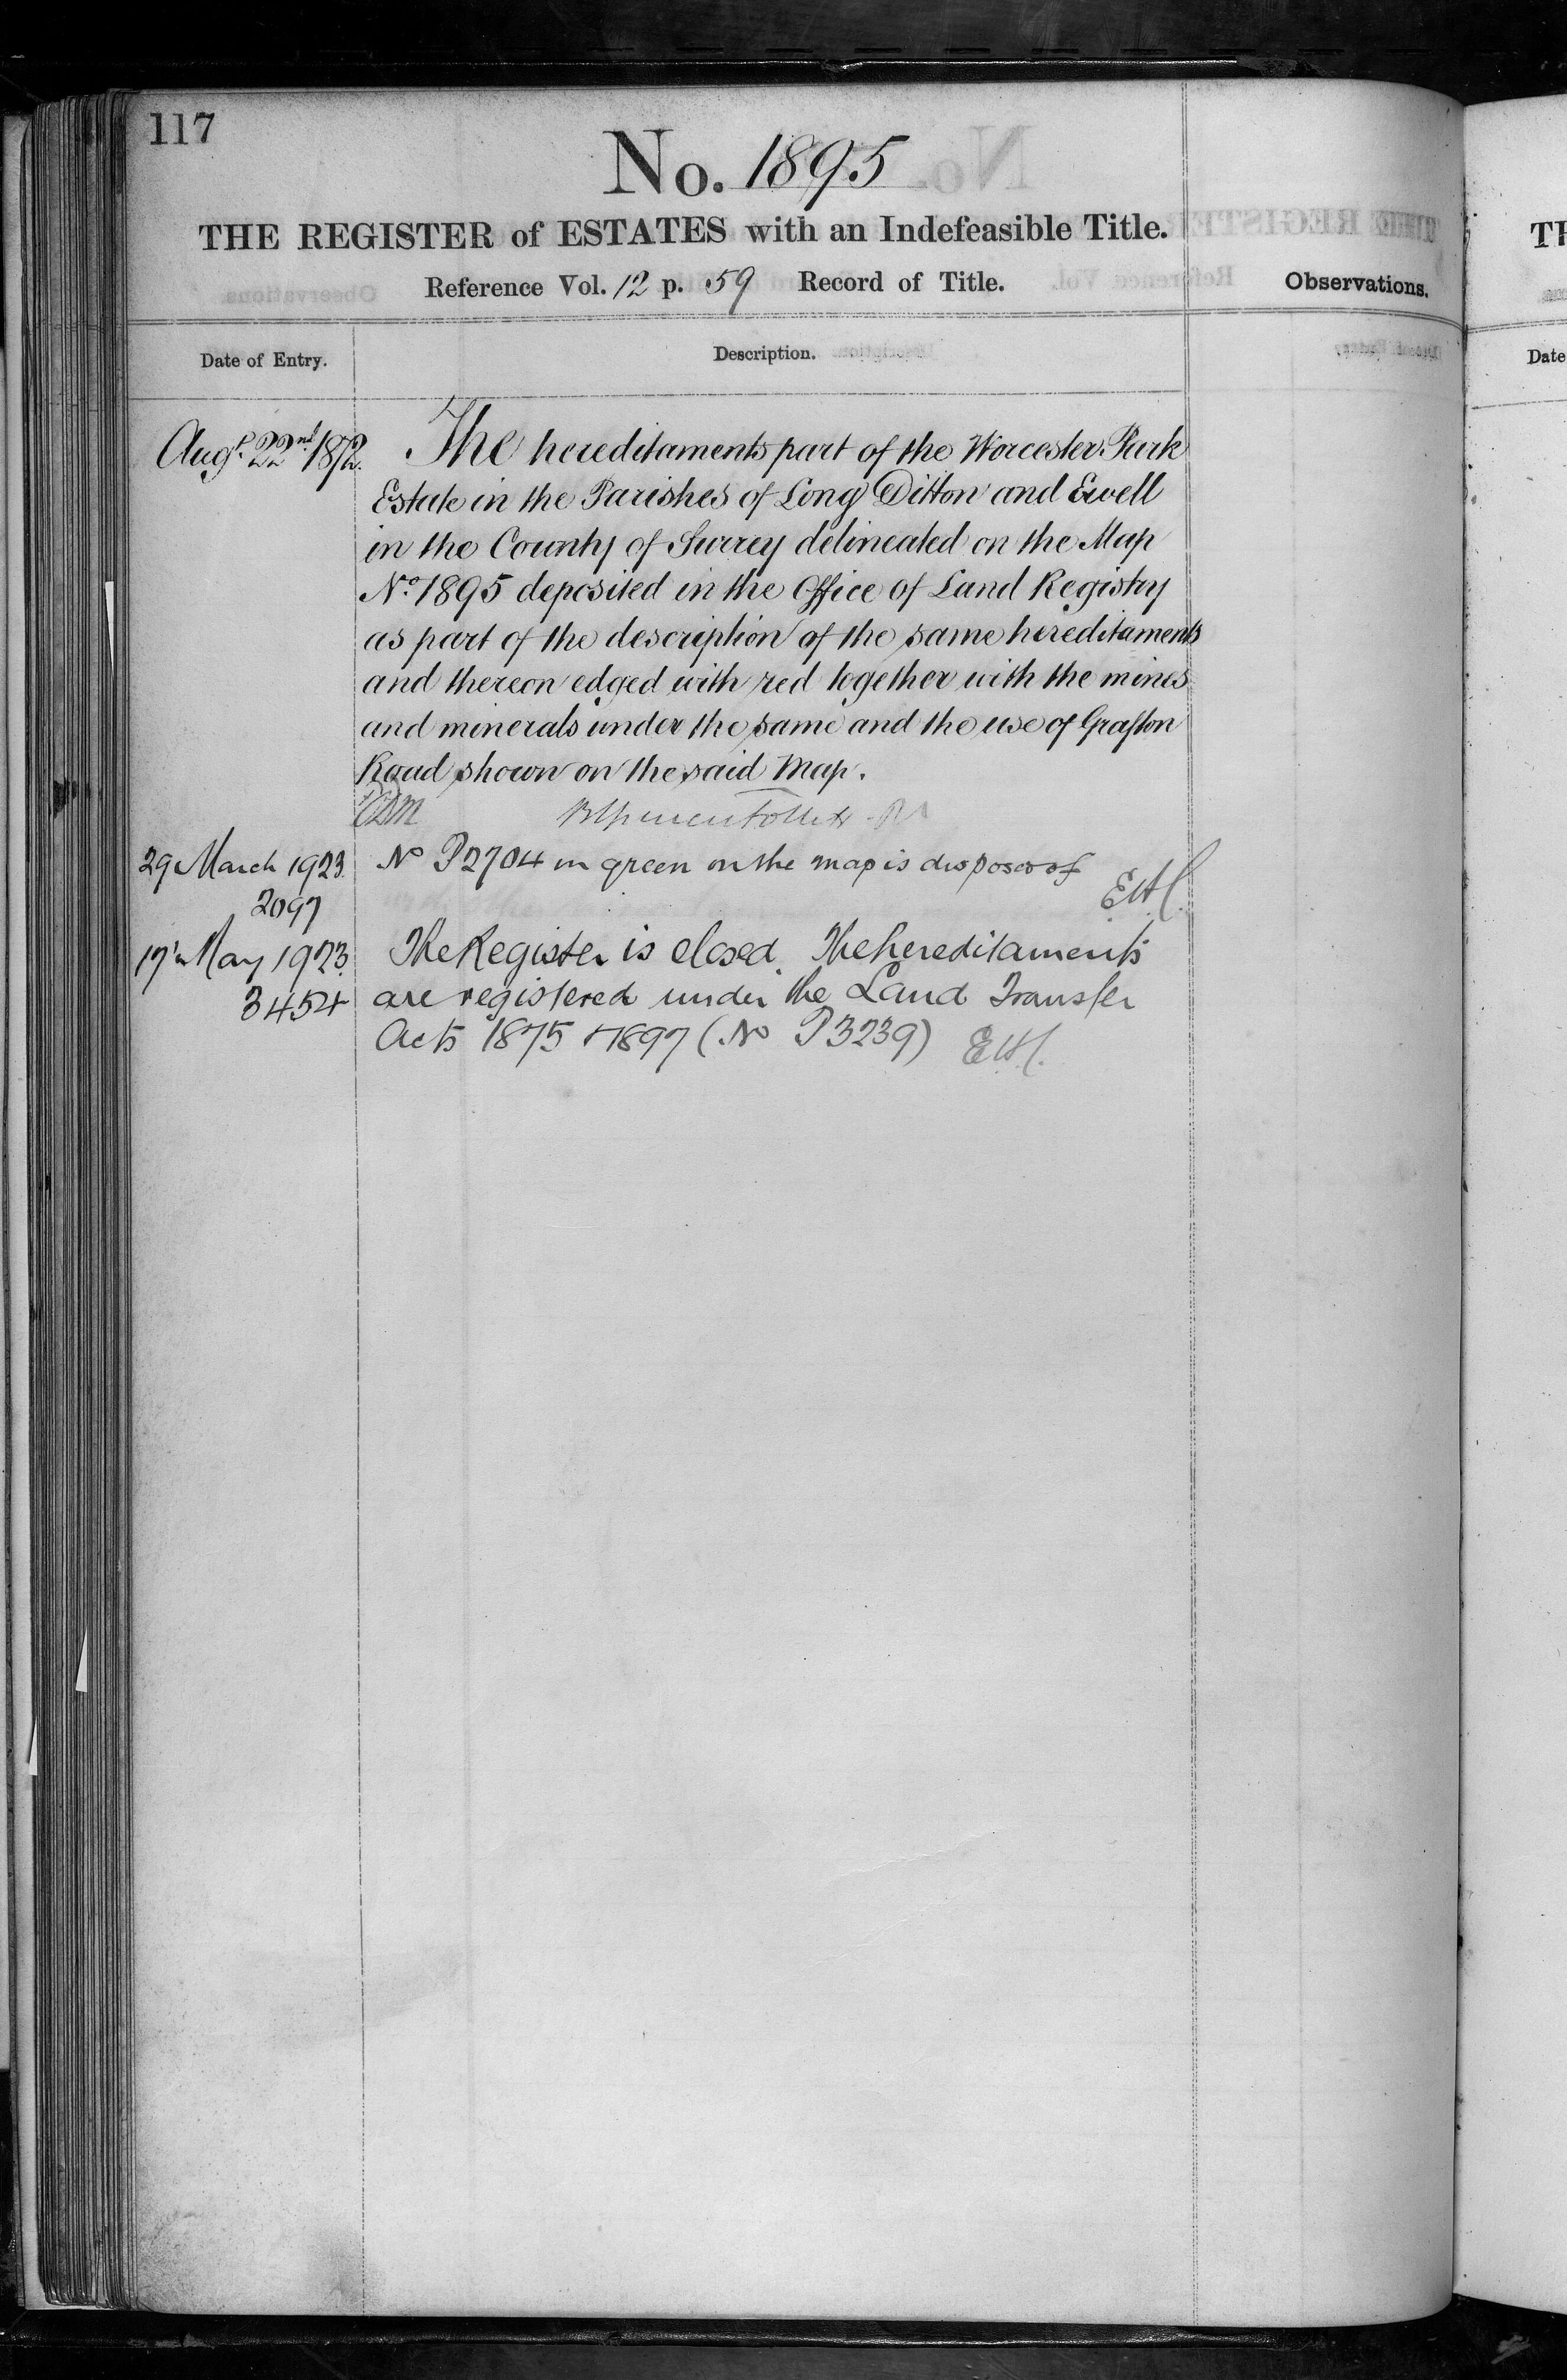 117
No. 1895
THE REGISTER of ESTATES with an Indefeasible Title.
Reference Vol. 12 p. 59 Record of Title.
Observations.
Date of Entry.
Description.
Augt. 22nd 1872.
The hereditaments part of the Worcester Park
Estate in the Parishes of Long Ditton and Ewell
in the County of Surrey delineated on the Map
No. 1895 deposited in the Office of Land Registry
as part of the description of the same hereditaments
and thereon edged with red together with the mines
and minerals under the same and the use of Grafton
Road shown on the said Map.
29 March 1923.
2097
No P2704 in green on the map is disposed of
17th May 1923.
3454
The Register is closed. The hereditaments
are registered under the Land Transfer
Acts 1875 & 1897 (No P3239)
TH
Date